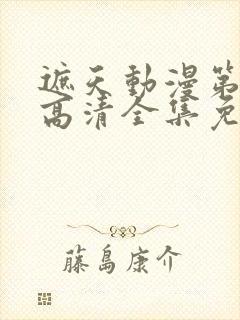 遮天動漫第
高清全集免
藤島康介